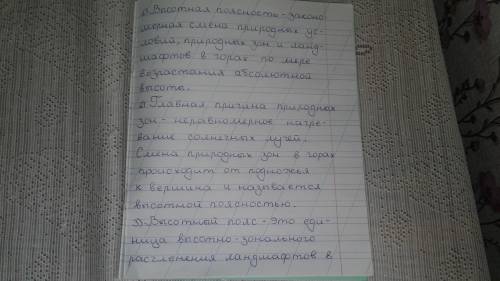 1) Высотная поясность - законо-
мерная смена природных ус-
ловий, природных зон и ланд-
шафтов в горах по мере
возрастания абсолютной
высоты.
2) Главная причина природных
зон - неравномерное нагре-
вание солнечных лучей.
Смена природных зон в горах
происходит от подножья
к вершина и называется
высотной поясностью.
3) Высотный пояс - это еди-
ница высотно-зонального
расчленения ландшафтов в